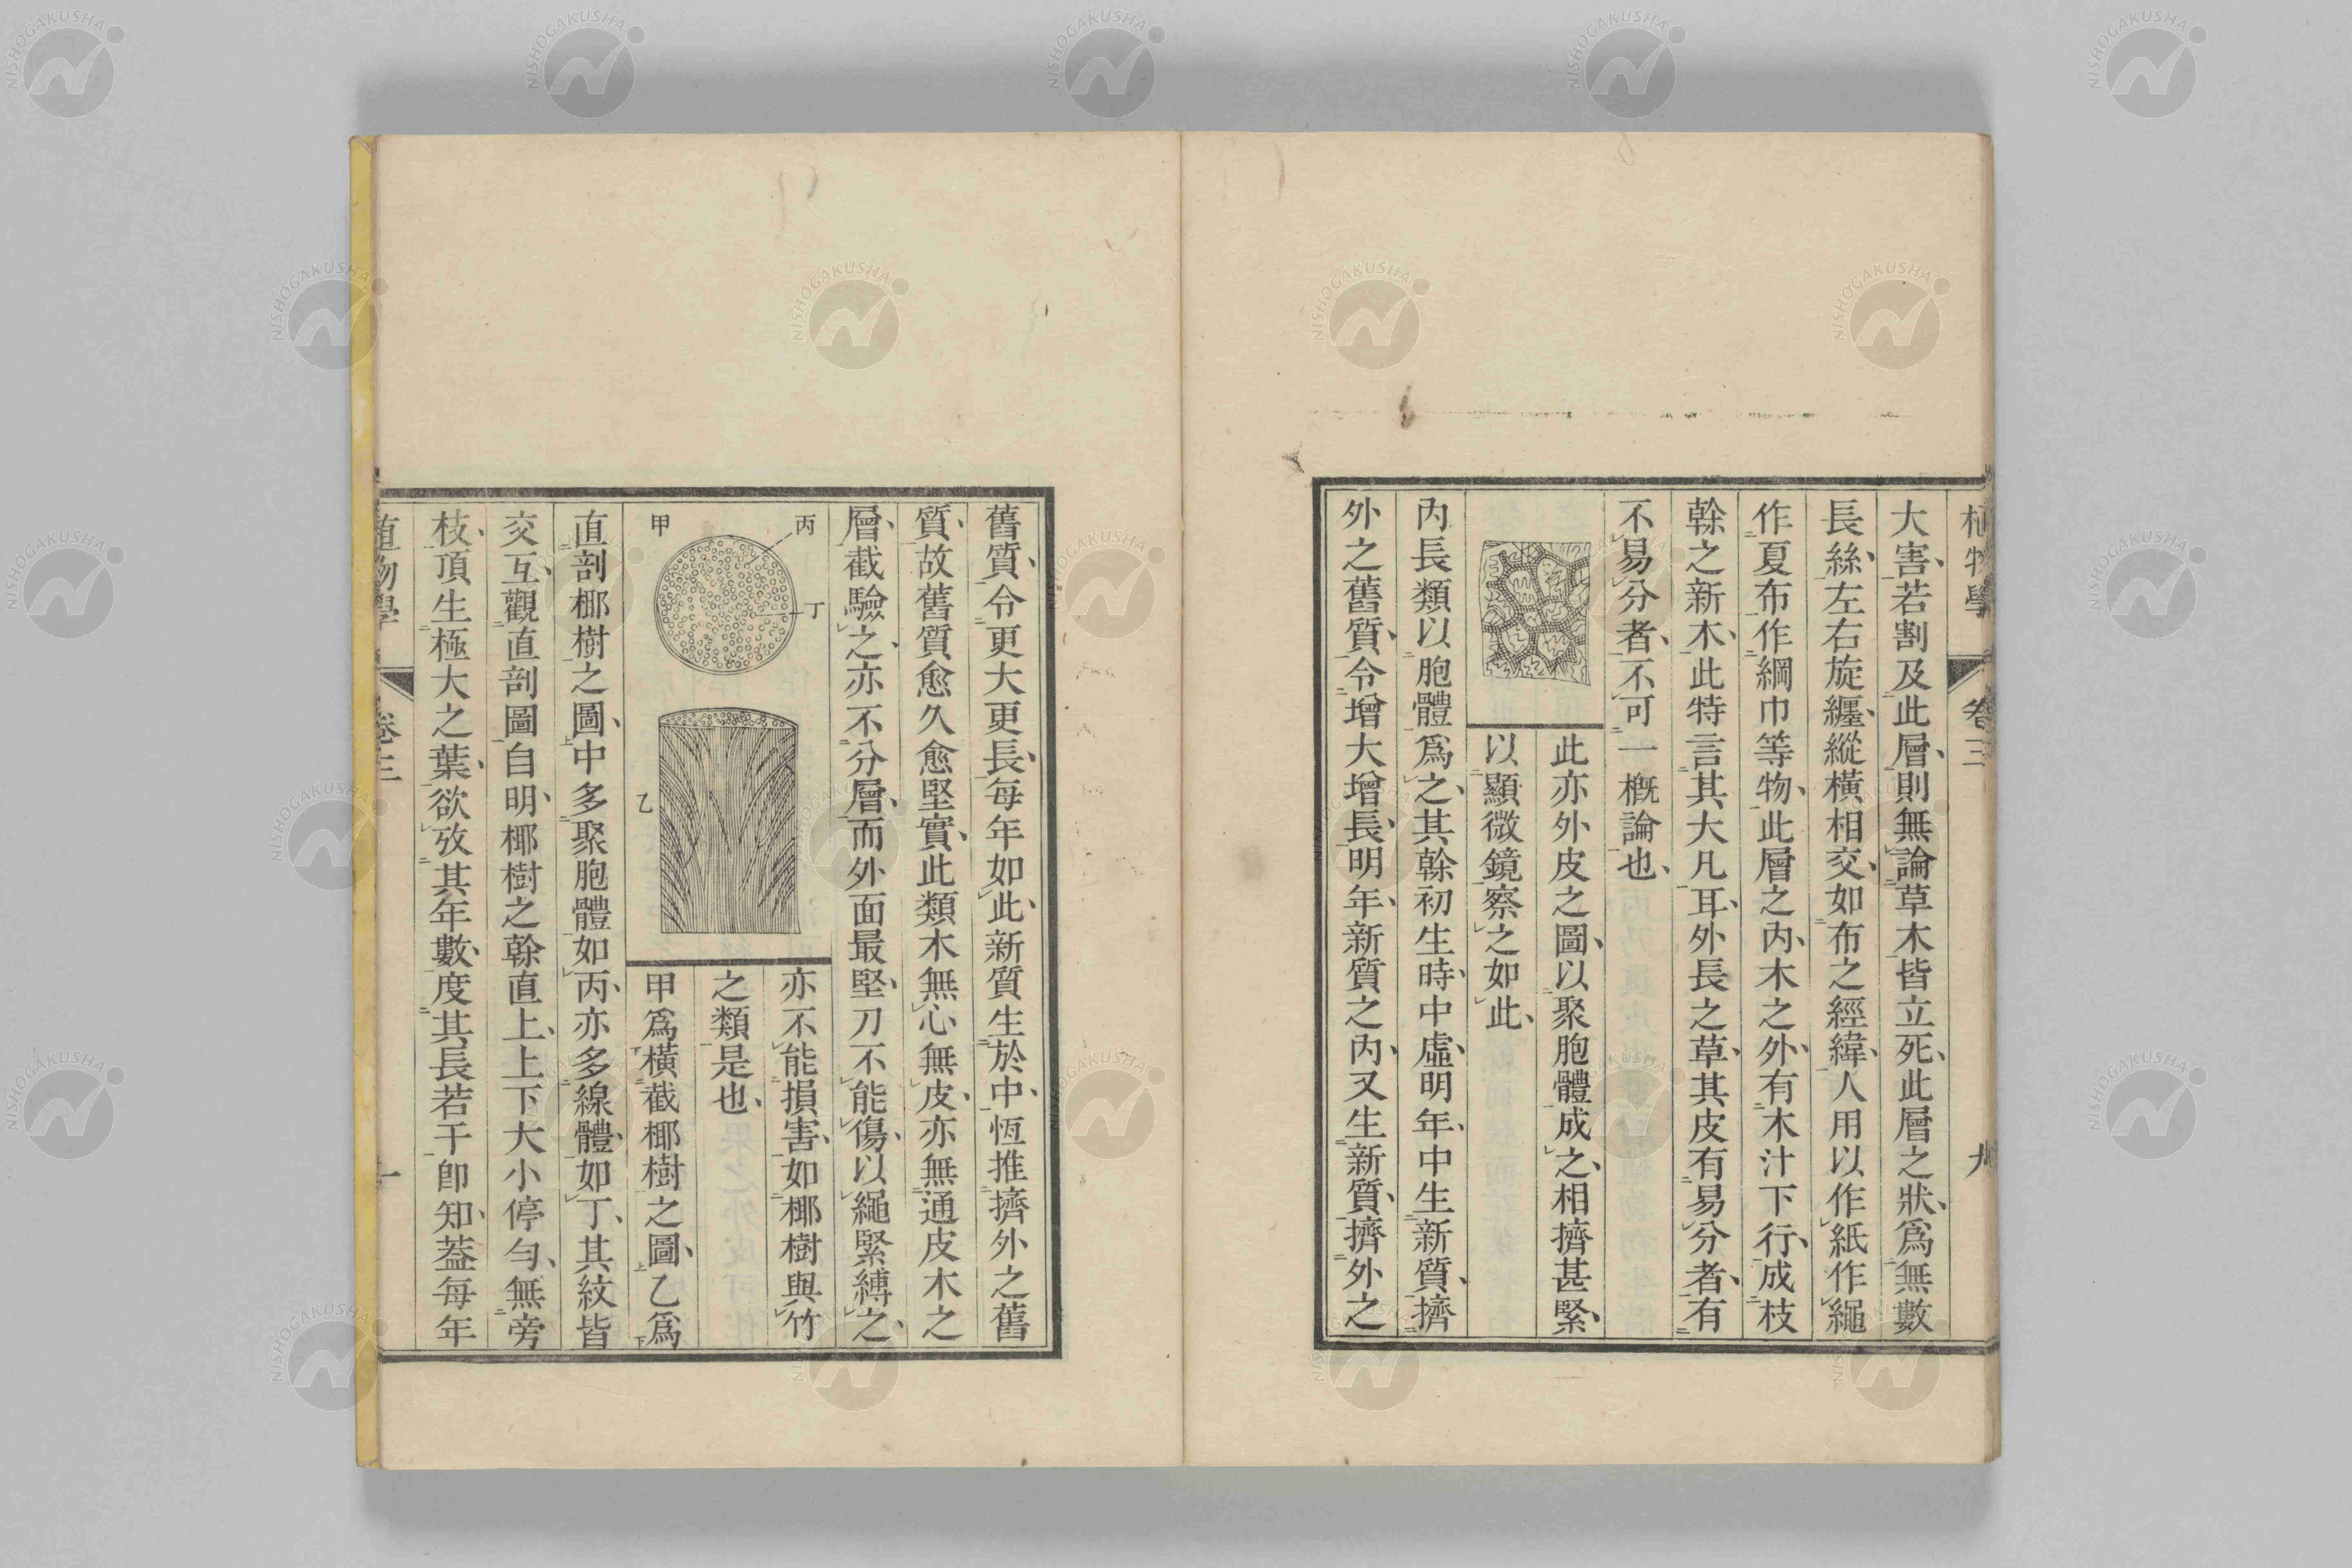 植物學 卷三 九
大害、若割及此層、則無論草木皆立死、此層之狀、爲無數
長絲、左右旋纏、縱橫相交、如布之經緯、人用以作紙作繩
作夏布作綱巾等物、此層之內、木之外、有木汁下行、成枝
榦之新木、此特言其大凡耳、外長之草、其皮有易分者、有
不易分者、不可一概論也、
此亦外皮之圖、以聚胞體成之、相擠甚緊、
以顯微鏡察之如此、
內長類以胞體爲之、其榦初生時、中虛、明年、中生新質、擠
外之舊質、令增大增長、明年、新質之內又生新質、擠外之
舊質、令更大更長、每年如此、新質生於中、恆推擠外之舊
質、故舊質愈久愈堅實、此類木無心無皮、亦無通皮木之
層、截驗之、亦不分層、而外面最堅、刀不能傷、以繩緊縛之、
亦不能損害、如椰樹與竹
之類是也、
甲爲橫截椰樹之圖、乙爲
甲
丙
丁
乙
直剖椰樹之圖、中多聚胞體如丙、亦多線體、如丁、其紋皆
交互、觀直剖圖自明、椰樹之榦直上、上下大小停勻、無旁
枝、頂生極大之葉、欲攷其年數、度其長若干卽知、葢每年
植物學 卷三
NISHOGAKUSHA